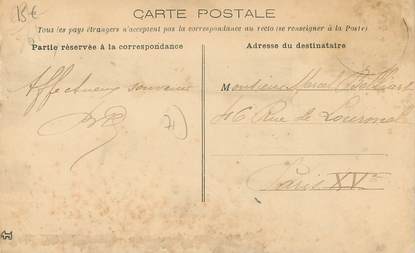 15€
CARTE POSTALE
Tous les pays étrangers n'acceptent pas la correspondance au recto (se renseigner à la Poste)
Partie réservée à la correspondance
Adresse du destinataire
Affectueux souvenir
Monsieur Marcel
46 Rue de
Paris XVe